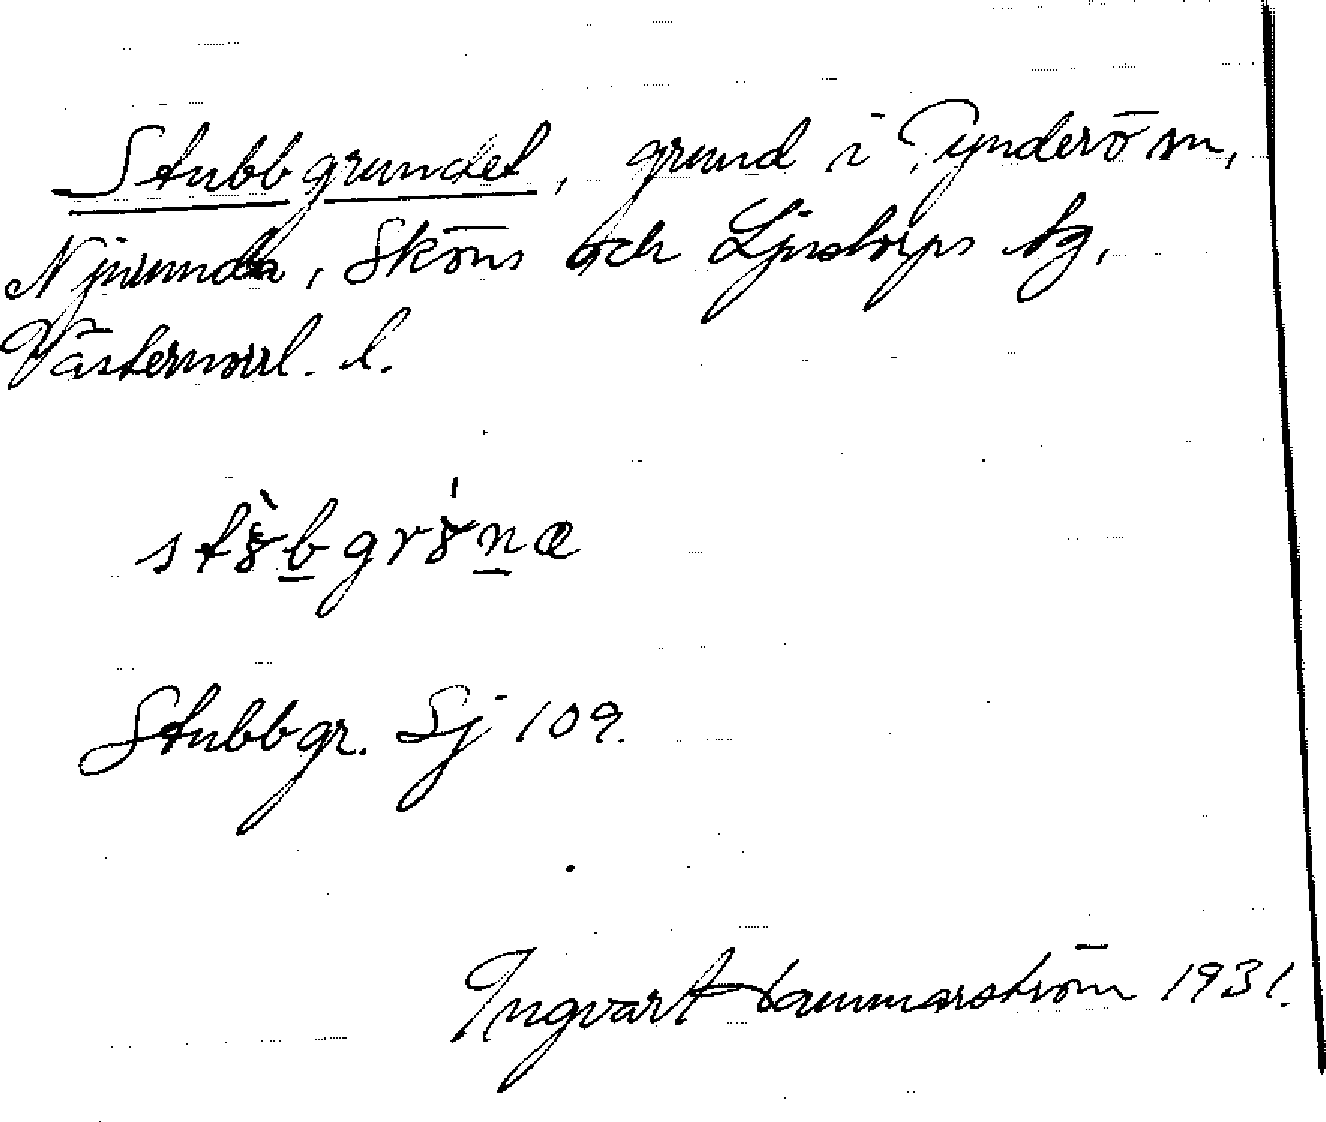 Stubbgrundet, grund i Tynderö sn,
Njurunda, Sköns och Ljustorps tg,
Västernorrl. l.
Stubbgr. Sj 109.
Ingvart Hammarström 1931.